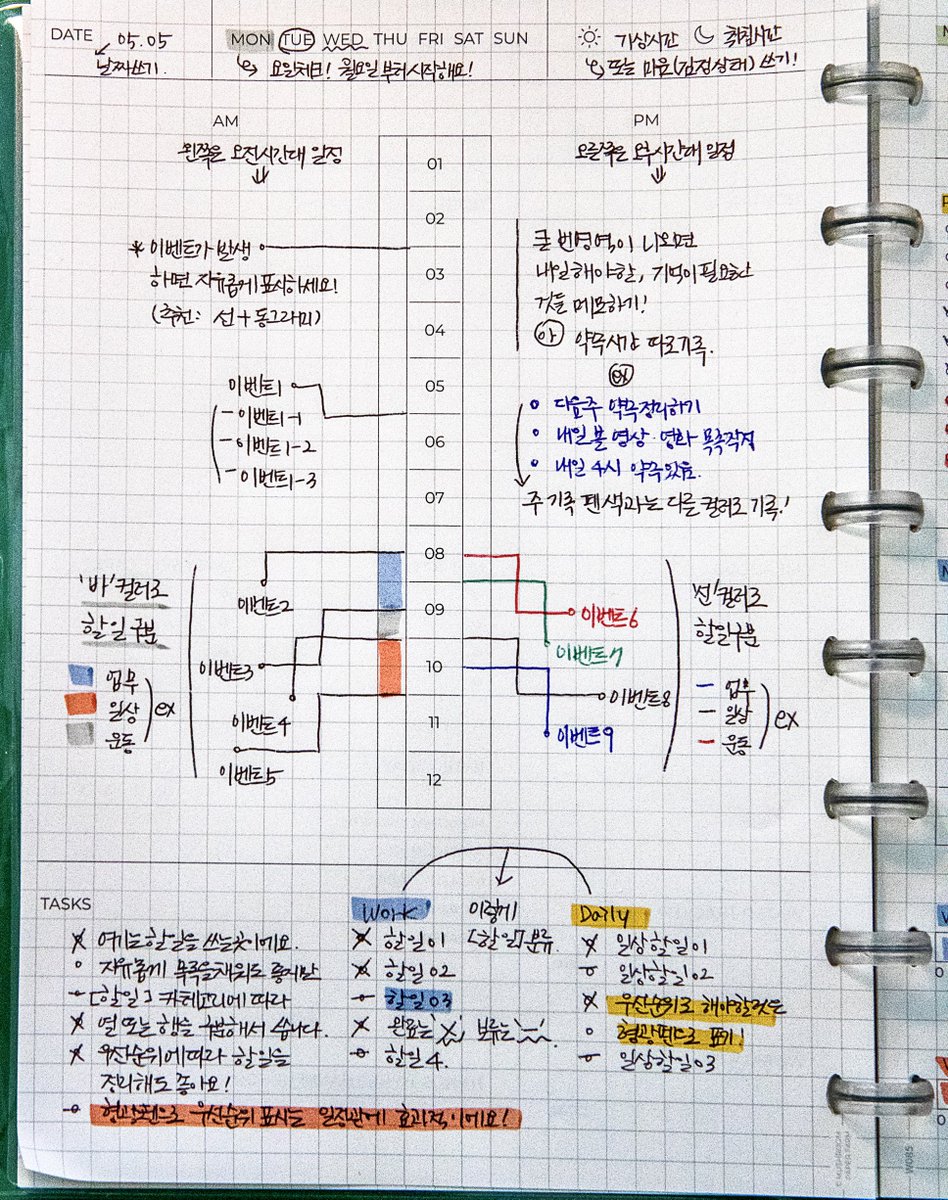 DATE 05.05
날짜쓰기.
MON TUE WED THU FRI SAT SUN
요일체크! 월요일부터시작해요!
기상시간 취침시간
또는 마음(감정상태) 쓰기!
AM
왼쪽은 오전시간대 일정
PM
오른쪽은 오후시간대 일정
01
02
03
04
05
06
07
08
09
10
11
12
* 이벤트가 발생
하면 자유롭게 표시하세요!
(추천: 선+동그라미)
이벤트1
- 이벤트1-1
- 이벤트1-2
- 이벤트1-3
큰 빈영역이 나오면
내일해야할, 기억이필요한
것들 메모하기!
아 약속시간 따로기록.
ex
다음주 약속정리하기
내일 볼 영상·영화 목록작성
내일 4시 약속있음.
주 기록 펜색과는 다른 컬러로 기록!
'바'컬러로
할일구분
업무
일상
운동
ex
이벤트2
이벤트3
이벤트4
이벤트5
이벤트6
이벤트7
이벤트8
이벤트9
'선'컬러로
할일구분
업무
일상
운동
ex
TASKS
여기는할일을 쓰는곳이에요.
자유롭게 목록을채워도 좋지만
[할일] 카테고리에 따라
열 또는 행을 구분해서 씁니다.
우선순위에따라 할일을
정리해도 좋아요!
형광펜으로 우선순위 표시는 일정관리에 효과적이에요!
Work
할일01
할일02
할일03
완료는'X', 보류는'~'.
할일4.
이렇게
[할일]분류.
Daily
일상할일01
일상할일02
우선순위로 해야할것은
형광펜으로 표기!
일상할일03
W085